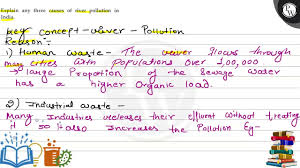 Explain any three causes of river pollution in
India.
key concept - River - Pollution
Reason:-
1) Human waste - The river flows through
many cities with populations over 1,00,000
→ large Proportion of the Sewage water
has any higher Organic load.
2) Industrial waste -
Many Industries release their effluent without treating
it so it also increases the Pollution Eg-